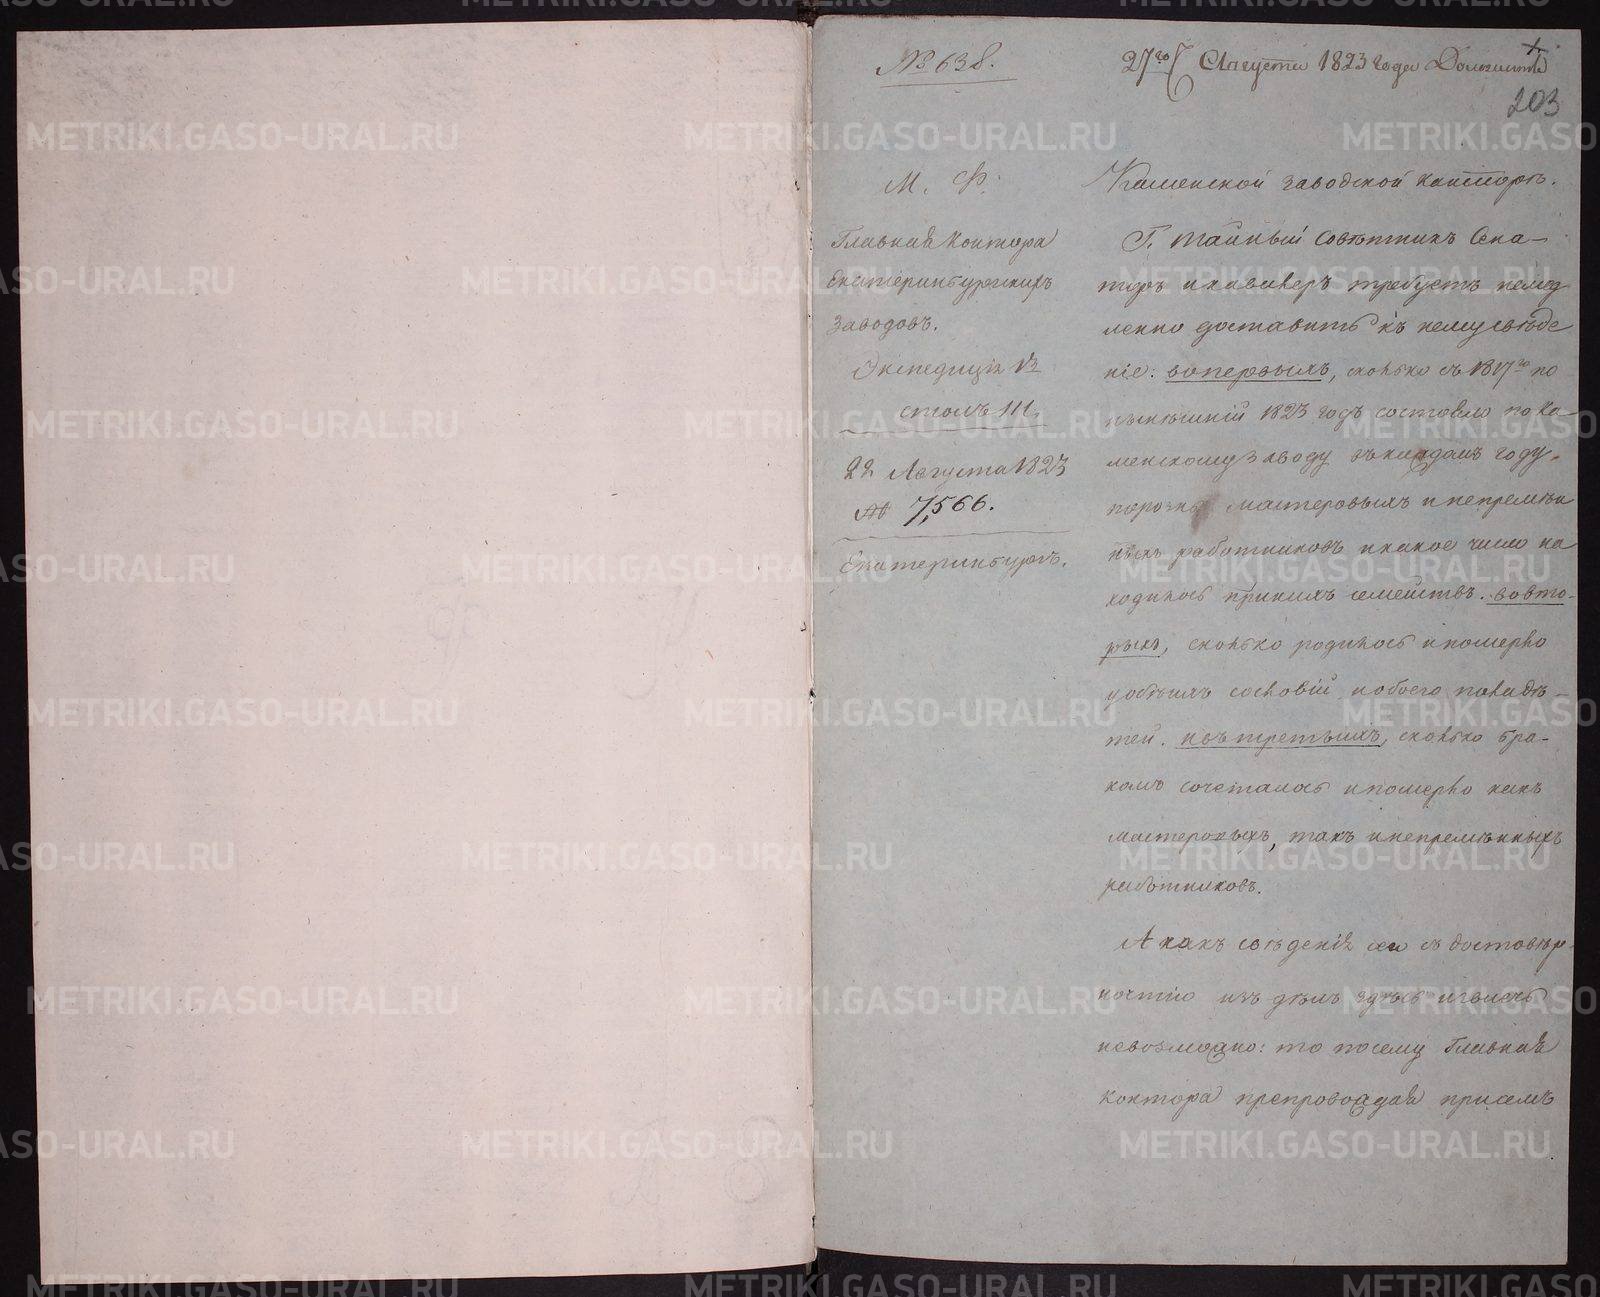 № 638.
27го Августа 1823 года
203
М. Ф.
Главная Контора
Екатеринбургскихъ
Заводовъ.
Экспедиція
столъ III.
22 Августа 1823
№ 7,566.
Екатеринбургъ.
Каменской заводской канторѣ.
Г. тайный совѣтникъ Сена-
торъ и кавалеръ требуетъ немед
ленно доставить къ нему свѣде
ніе: вопервыхъ, сколько съ 1817го по
нынѣшній 1823 годъ состояло по Ка
менскому заводу въ каждомъ году,
порознь мастеровыхъ и непремѣн
ныхъ работниковъ и какое число на
ходилось при нихъ семействъ. вовто-
рыхъ, сколько родилось и померло
у обѣихъ сословій и обоего пола дѣ-
тей. въ третьихъ, сколько бра-
комъ сочеталось и померло какъ
мастеровыхъ, такъ и непремѣнныхъ
работниковъ.
А какъ свѣденія сіи съ достовѣр-
ностію изъ дѣлъ здѣсь извлечь
невозможно: то посему Главная
Контора препровождая присемъ
METRIKI.GASO-URAL.RU